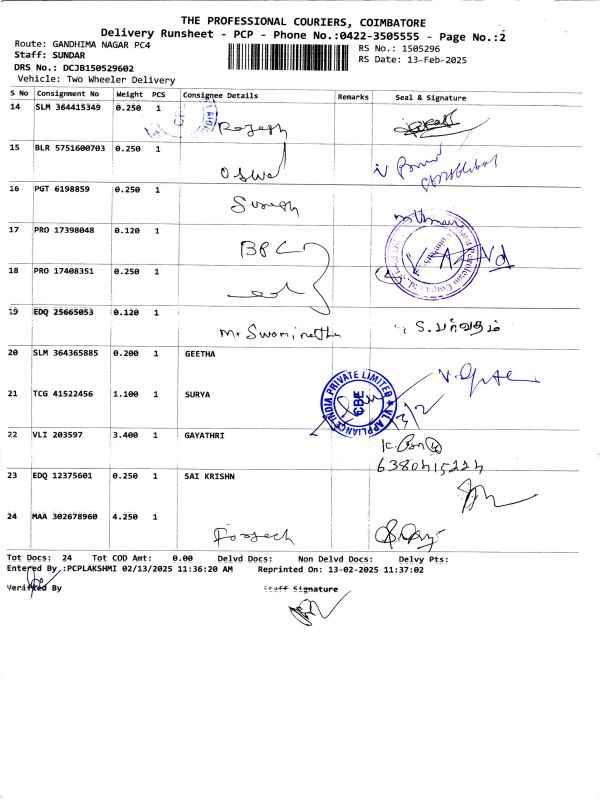 THE PROFESSIONAL COURIERS, COIMBATORE
Delivery Runsheet - PCP - Phone No.:0422-3505555 - Page No.:2
Route: GANDHIMA NAGAR PC4 RS No.: 1505296
Staff: SUNDAR RS Date: 13-Feb-2025
DRS No.: DCJB150529602
Vehicle: Two Wheeler Delivery
S No Consignment No Weight PCS Consignee Details Remarks Seal & Signature
14 SLM 364415349 0.250 1 Rajesh
15 BLR 5751600703 0.250 1 Oswal
16 PGT 6198859 0.250 1 Suresh
17 PRO 17398048 0.120 1 BPC
18 PRO 17408351 0.250 1
19 EDQ 25665053 0.120 1 Mr Swaminatha S. பர்வதம்
20 SLM 364365885 0.200 1 GEETHA
21 TCG 41522456 1.100 1 SURYA
VL APPLIANCE INDIA PRIVATE LIMITED
CBE
22 VLI 203597 3.400 1 GAYATHRI
23 EDQ 12375601 0.250 1 SAI KRISHN
24 MAA 302678960 4.250 1
Tot Docs: 24 Tot COD Amt: 0.00 Delvd Docs: Non Delvd Docs: Delvy Pts:
Entered By :PCPLAKSHMI 02/13/2025 11:36:20 AM Reprinted On: 13-02-2025 11:37:02
Verified By Staff Signature